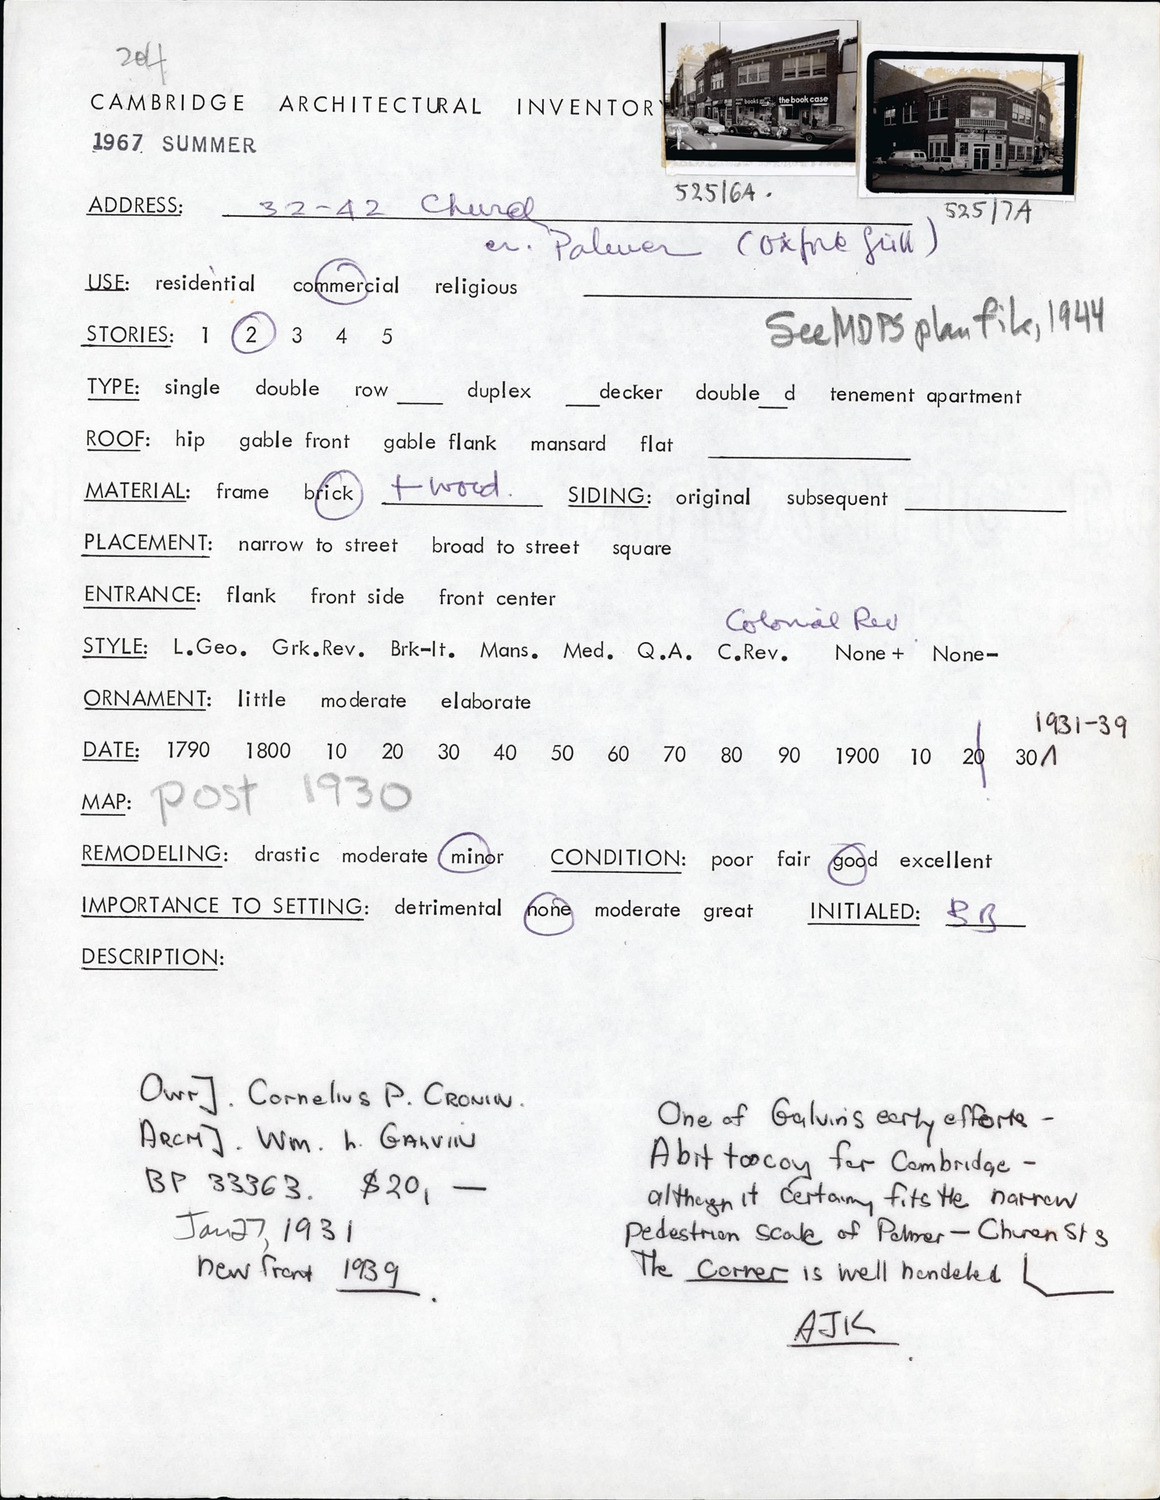 204
CAMBRIDGE ARCHITECTURAL INVENTORY
1967 SUMMER
books
the book case
525/6A.
525/7A
ADDRESS: 32-42 Church
cr. Palmer (Oxford Grill)
USE: residential commercial religious
See MDPS plan file, 1944
STORIES: 1 2 3 4 5
TYPE: single double row ___ duplex ___decker double__d tenement apartment
ROOF: hip gable front gable flank mansard flat
MATERIAL: frame brick + wood. SIDING: original subsequent
PLACEMENT: narrow to street broad to street square
ENTRANCE: flank front side front center
Colonial Rev
STYLE: L.Geo. Grk.Rev. Brk-It. Mans. Med. Q.A. C.Rev. None+ None-
ORNAMENT: little moderate elaborate
1931-39
DATE: 1790 1800 10 20 30 40 50 60 70 80 90 1900 10 20 30
MAP: post 1930
REMODELING: drastic moderate minor CONDITION: poor fair good excellent
IMPORTANCE TO SETTING: detrimental none moderate great INITIALED: BB
DESCRIPTION:
Owr]. Cornelius P. CRONIN.
ARCH]. Wm. L. GALVIN
BP 33363. $20, —
Jan 27, 1931
new front 1939.
One of Galvin's early efforts -
A bit too coy for Cambridge -
although it certainly fits the narrow
pedestrian scale of Palmer - Church Sts
The Corner is well handeled
AJK